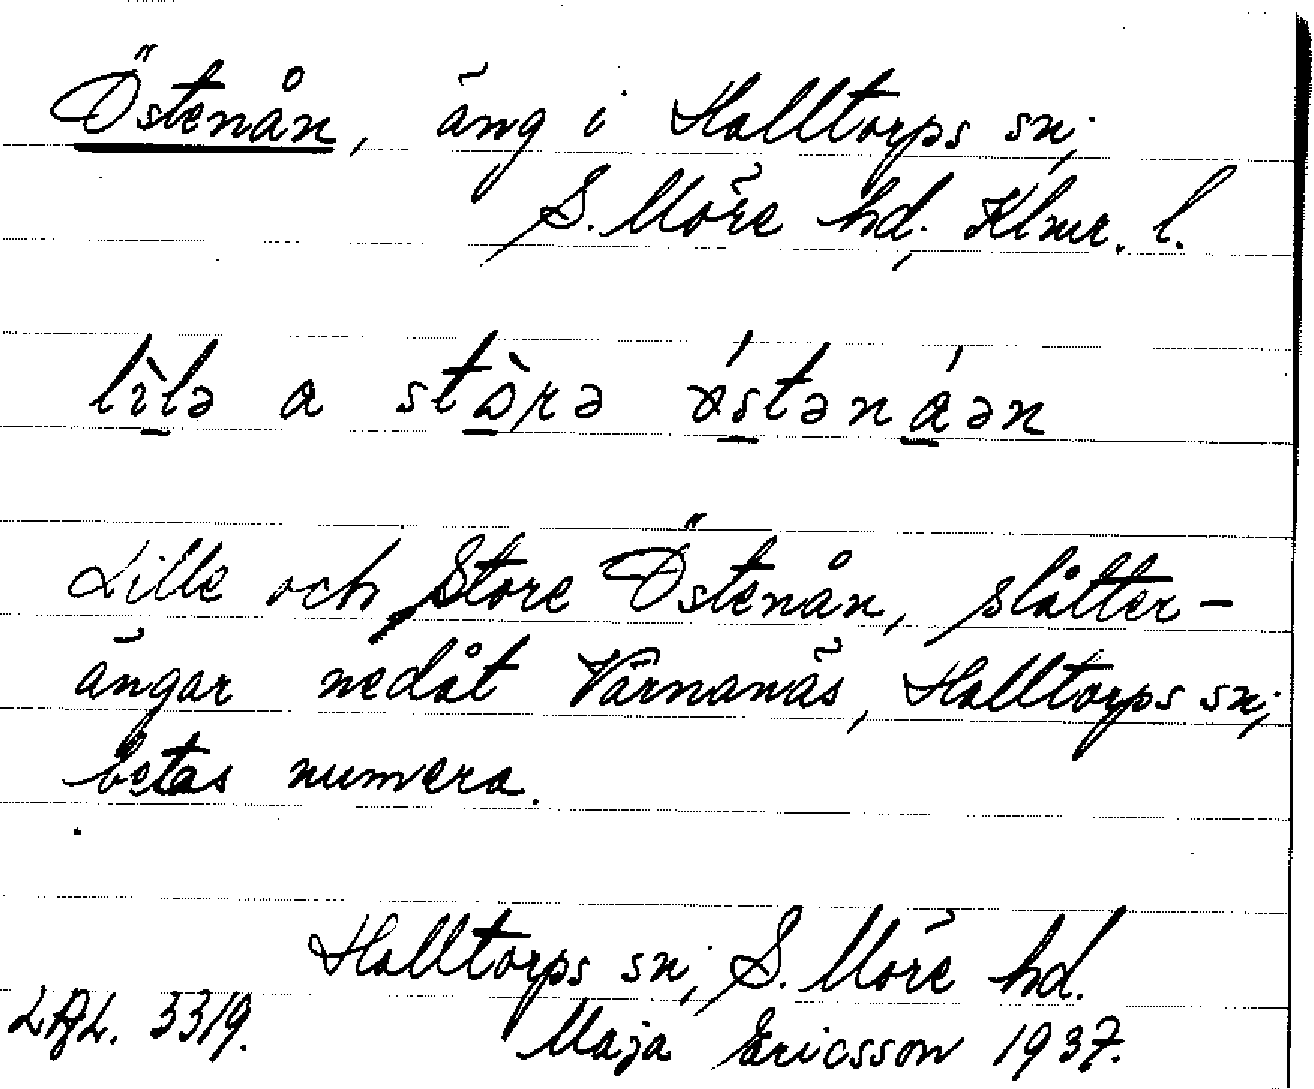 Östenån, äng i Halltorps sn,
S. Möre hd, Klmr. l.
lìlə a stòrə ǿstənáən
Lille och Store Östenån, slåtter-
ängar nedåt Värnanäs, Halltorps sn,
betas numera.
Halltorps sn, S. Möre hd.
3319. Maja Ericsson 1937.